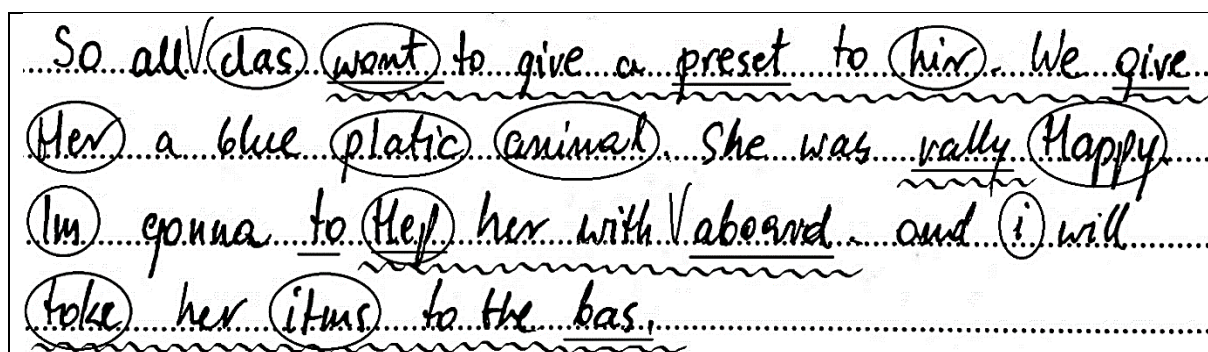 So all V clas want to give a preset to hir. We give
Her a blue platic animal. She was rally Happy.
Im gonna to Hep her with V aboard. and i will
take her itms to the bas.